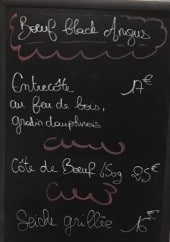 Boeuf black Angus
Entrecôte 17€
au feu de bois,
gratin dauphinois
Côte de Boeuf 450g 25€
Seiche grillée 16€